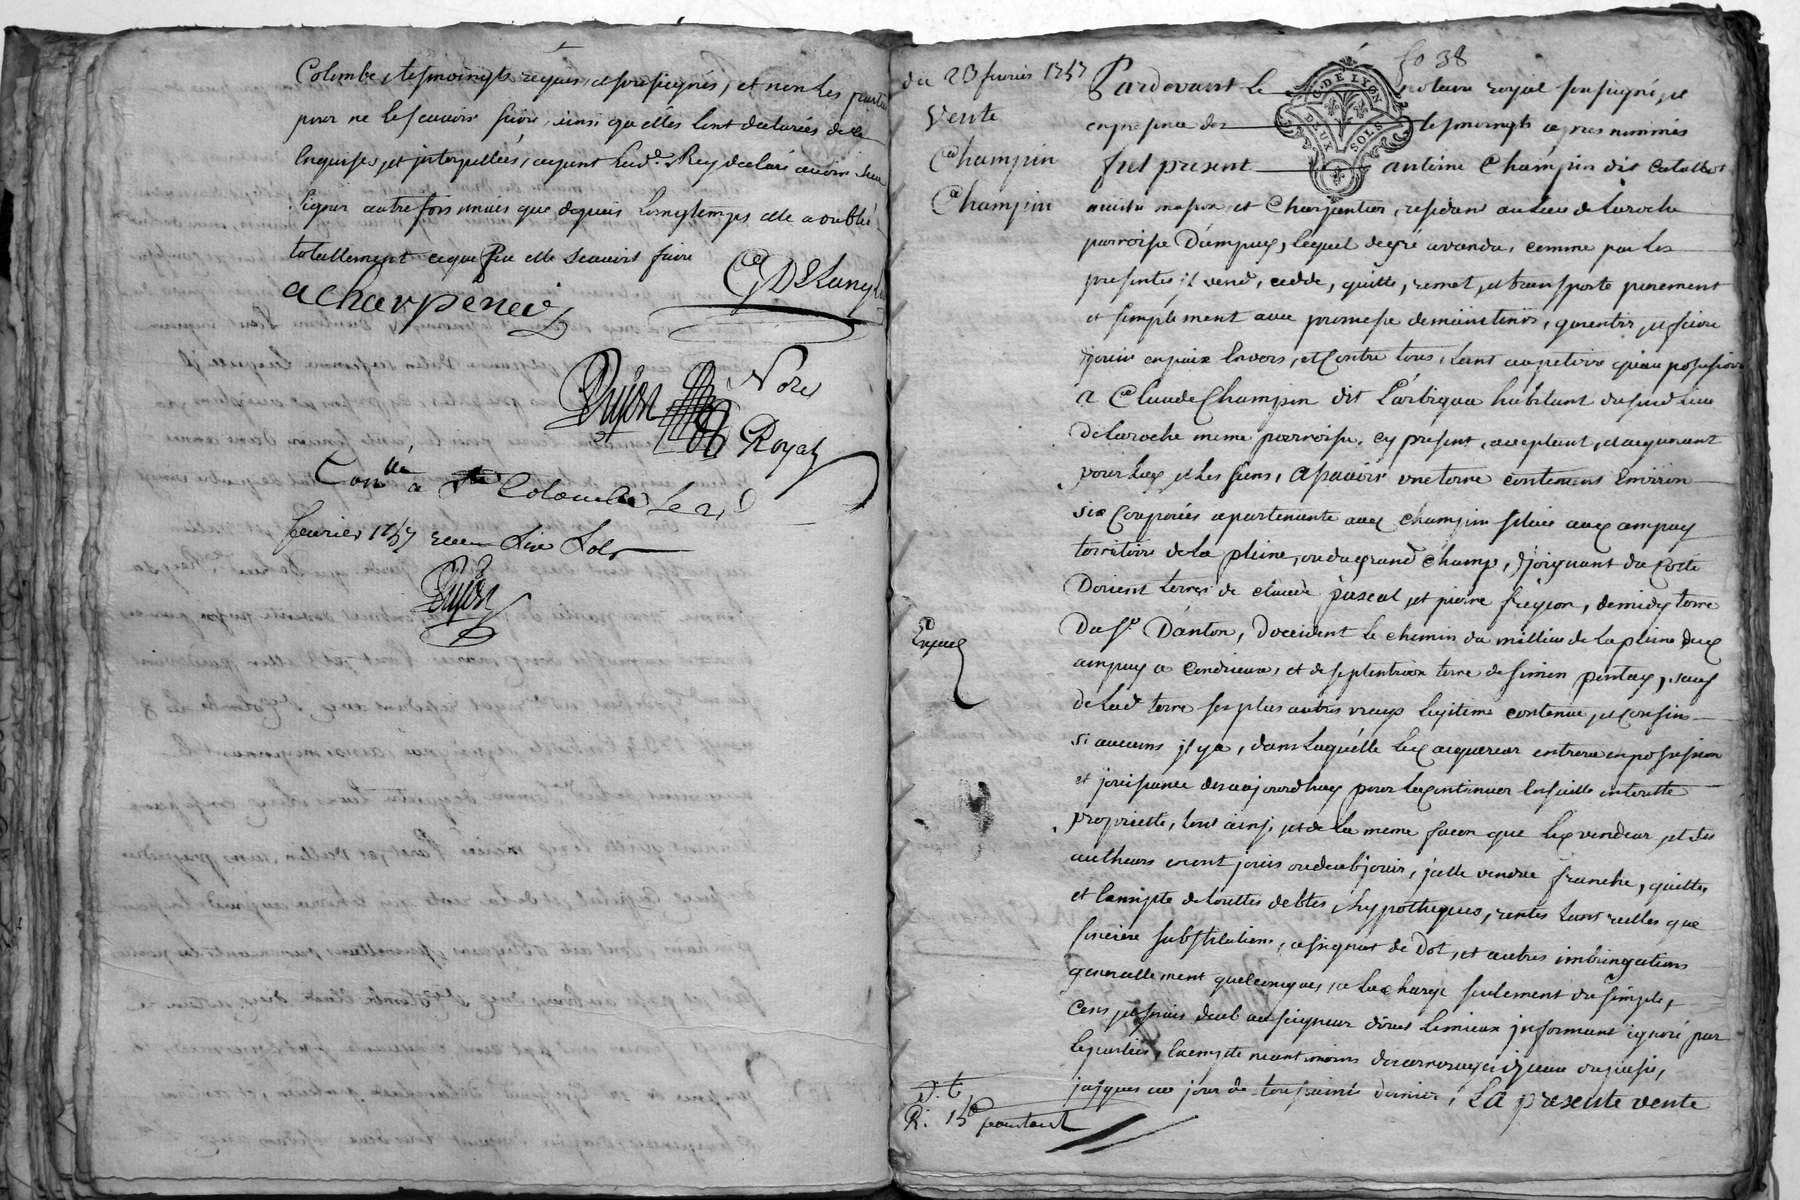 Colombe, tesmoingts requis, et soussignés, et non les parties
pour ne le scavoir faire, ainsi qu'elles l'ont declarées de ce
enquises, et interpellées, ayant Lad. Rey declaré avoir sceu
signer autrefois mais que depuis longtemps elle a oublié
totallement ce que peu elle scavoit faire
acharpenei
Dujon Nore
Royal
Conllé a Ste Colombe le
fevrier 1757 receu dix sols
Dujon
fo 38
du 23 fevrier 1757
Vente
Champin
a
Champin
G. DE LYON
DEUX SOLS
Pardevant le notaire royal soussigné, et
en presence des tesmoingts apres nommés
fut present antoine Champin dit
maitre masson et Charpentier, residant au lieu de Laroche
parroisse Dampuy, lequel de gré a vendu, comme par les
presentes il vend, cedde, quitte, remet, et transporte purement
et simplement avec promesse de maintenir, garentir, et faire
jouir en paix envers, et contre tous, tant au petitoire qu'au possessoire
a Claude Champin dit habitant dud. lieu
de Laroche meme parroisse, cy present, acceptant, et acquerant
pour luy et les siens, a scavoir une terre contenant environ
six Couporées apartenante aud. champin scituée aud. ampuy
territoire de la pleine, ou du grand champ, joignant du Cotté
Dorient terres de claude pascal, et pierre frejon, de midy terre
Du Sr. Danton, d'occident le chemin du millieu de la pleine dud.
ampuy a Condrieux, et de septentrion terre de simon pontay, sauf
de Lad. terre ses plus autres vrays legitime contenue, et Confins
si aucuns il y a, dans laquelle led. acquereur entrera en possession
et jouissance des aujourdhuy pour la continuer ensuitte en toutte
proprietté, tout ainsi, et de la meme facon que led. vendeur, et ses
autheurs en ont jouis ou deub jouir, jcelle vendue franche, quitte,
et exempte de touttes debtes, hypotheques, rentes tant reelles que
fonciere substitution, assignat de Dot, et autres imbringations
generallement quelconques, a la charge seulement du simple,
Cens et servis deub au seigneur direct le mieux informant ignoré par
les parties, exempte neantmoins
jusques au jour de toussaints dernier, La presente vente
Expedié